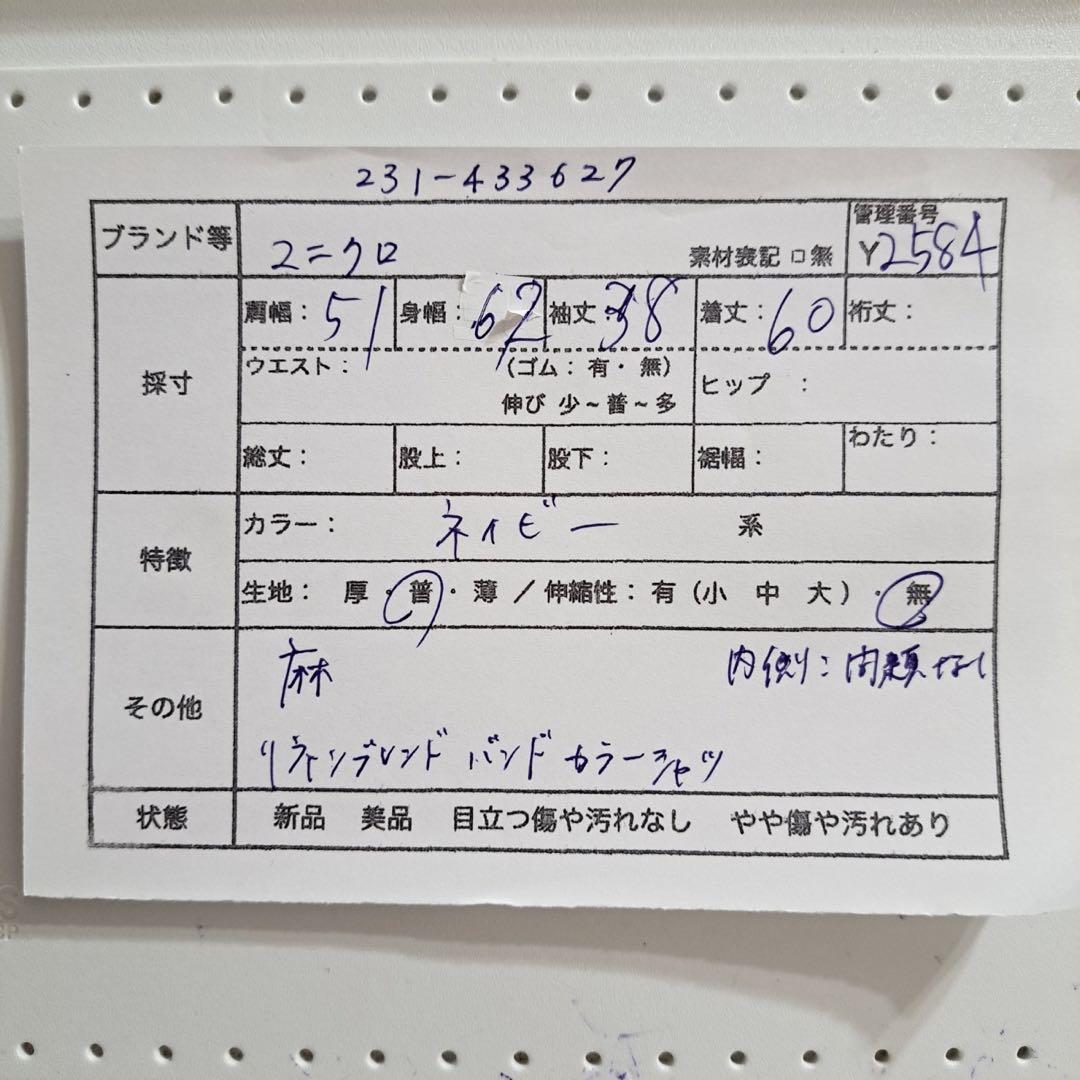 231-433627
ブランド等 ユニクロ 素材表記 □無 管理番号 Y2584
採寸 肩幅：51 身幅：62 袖丈：38 着丈：60 裄丈：
ウエスト： （ゴム：有・無）
伸び 少～普～多 ヒップ ：
総丈： 股上： 股下： 裾幅： わたり：
特徴 カラー： ネイビー 系
生地： 厚・普・薄／伸縮性：有（小 中 大）・無
その他 麻 内側：問題なし
リネンブレンド バンドカラーシャツ
状態 新品 美品 目立つ傷や汚れなし やや傷や汚れあり